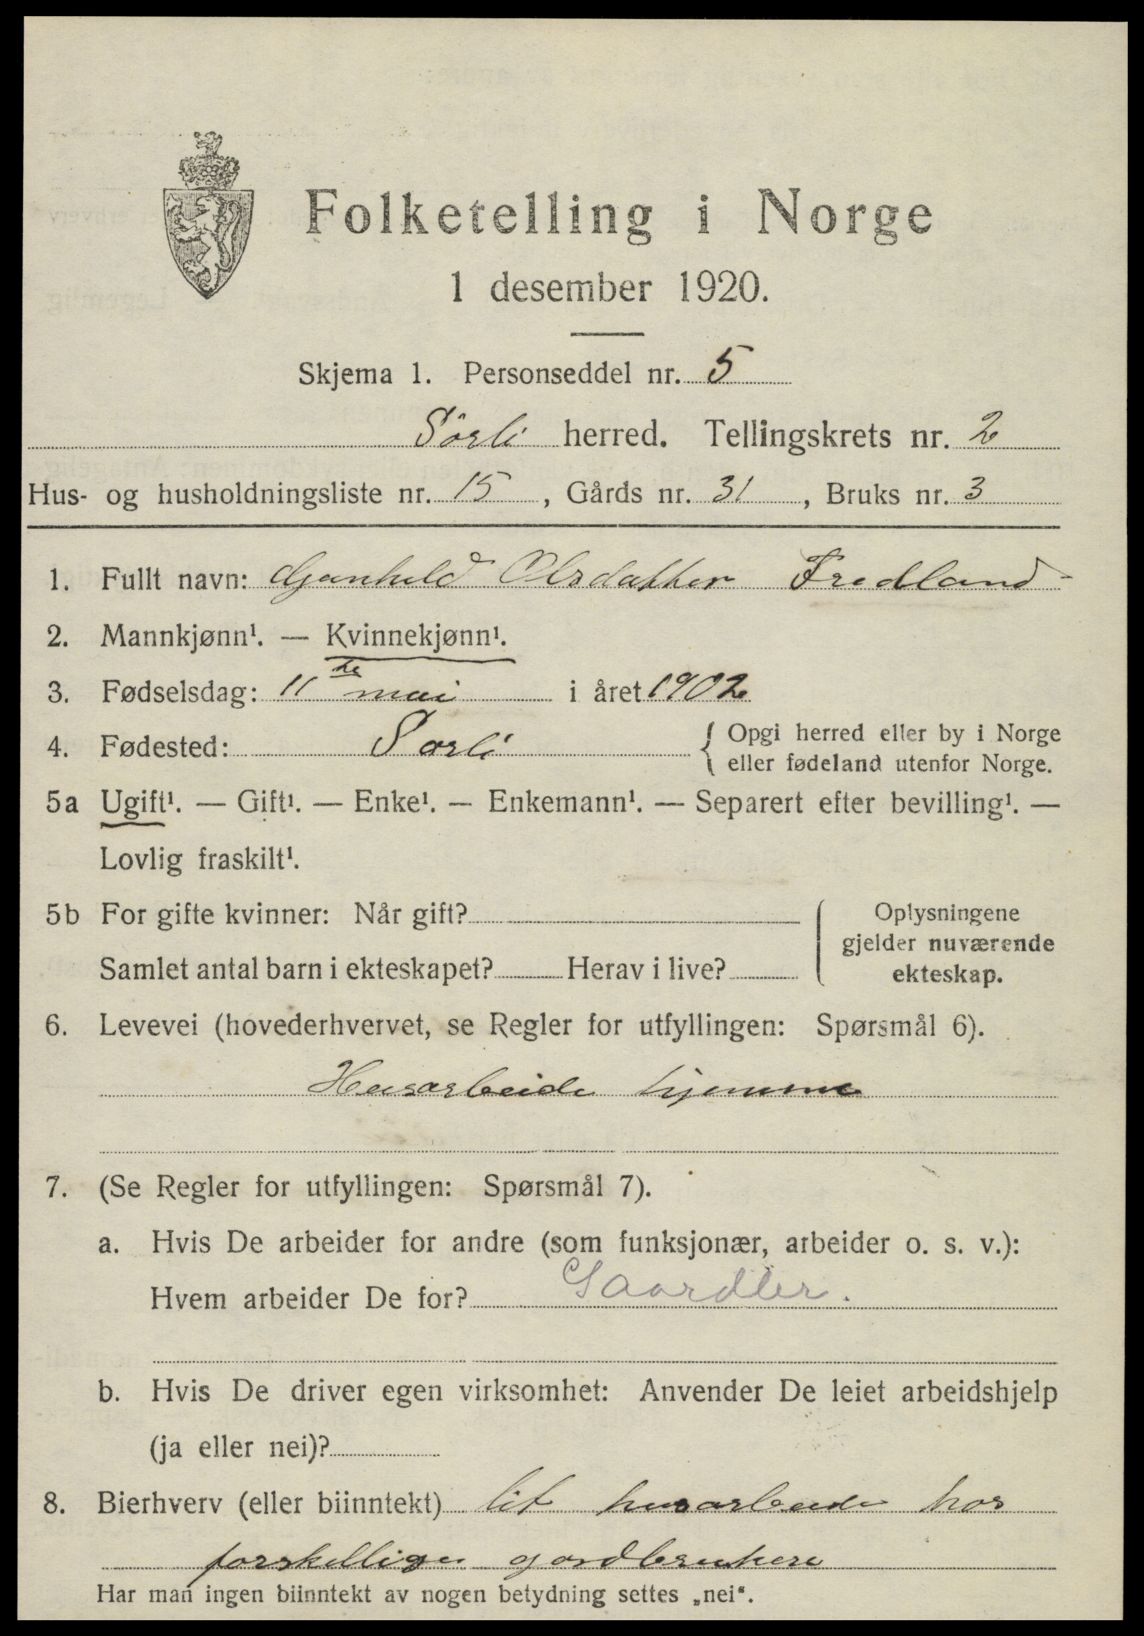 Folketelling i Norge
1 desember 1920.
Skjema 1. Personseddel nr. 5
Sörli herred. Tellingskrets nr. 2
Hus- og husholdningsliste nr. 15, Gårds nr. 31, Bruks nr. 3
1. Fullt navn: Gunhild Olsdatter Fredland
2. Mannkjønn¹. — Kvinnekjønn¹.
3. Fødselsdag: 11te mai i året 1902
4. Fødested: Sorli { Opgi herred eller by i Norge
eller fødeland utenfor Norge.
5a Ugift¹. — Gift¹. — Enke¹. — Enkemann¹. — Separert efter bevilling¹. —
Lovlig fraskilt¹.
5b For gifte kvinner: Når gift?
Samlet antal barn i ekteskapet? Herav i live?
Oplysningene
gjelder nuværende
ekteskap.
6. Levevei (hovederhvervet, se Regler for utfyllingen: Spørsmål 6).
Husarbeide hjemme
7. (Se Regler for utfyllingen: Spørsmål 7).
a. Hvis De arbeider for andre (som funksjonær, arbeider o. s. v.):
Hvem arbeider De for? Gaardbr.
b. Hvis De driver egen virksomhet: Anvender De leiet arbeidshjelp
(ja eller nei)?
8. Bierhverv (eller biinntekt) lit husarbeide hos
forskellige gardbrukere
Har man ingen biinntekt av nogen betydning settes „nei“.